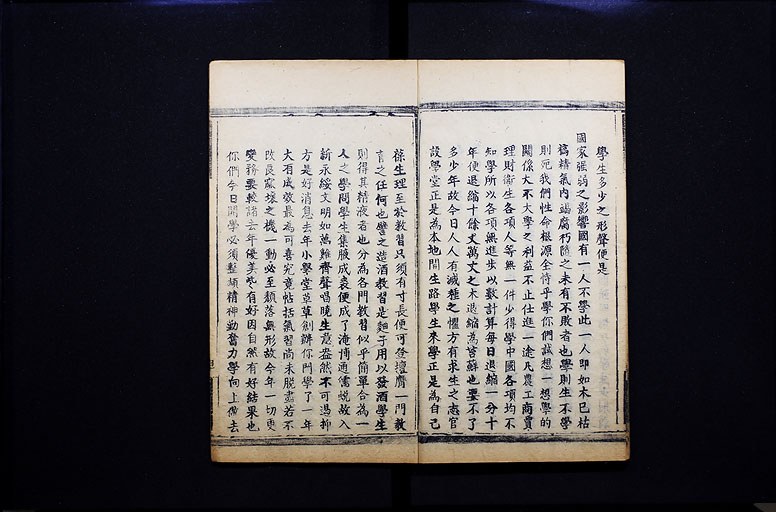 學生多少之形聲便是
國家强弱之影響國有一人不學此一人即如木已枯
槁精氣內竭腐朽隨之未有不敗者也學則生不學
則死我們性命根源全恃乎學你們試想一想學的
關係大不大學之利益不止仕進一途凡農工商賈
理財衛生各項人等無一件少得學中國各項均不
知學所以各項無進步以數計算每日退縮一分十
年便退縮十餘丈萬丈之木退縮為苔蘚也要不了
多少年故今日人人有滅種之懼方有求生之志官
設學堂正是為本地開生路學生來學正是為自己
葆生理至於教習只須有寸長便可登壇膺一門教
育之任何也譬之造酒教習是麯子用以發酒學生
則得其精液者也分為各門教習似乎簡單合為一
人之學問學生集腋成裘便成了淹博通儒蛻故入
新永綏文明如萬難齊聲唱曉生意盎然不可遏抑
方是好消息去年小學堂草草創辦你們學了一年
大有成效最為可喜究竟帖括氣習尚未脫盡若不
改良腐壞之機一動必至頹落無形故今年一切更
變務要較諸去年優美些有好因自然有好結果也
你們今日開學必須整頓精神勤奮力學向上做去